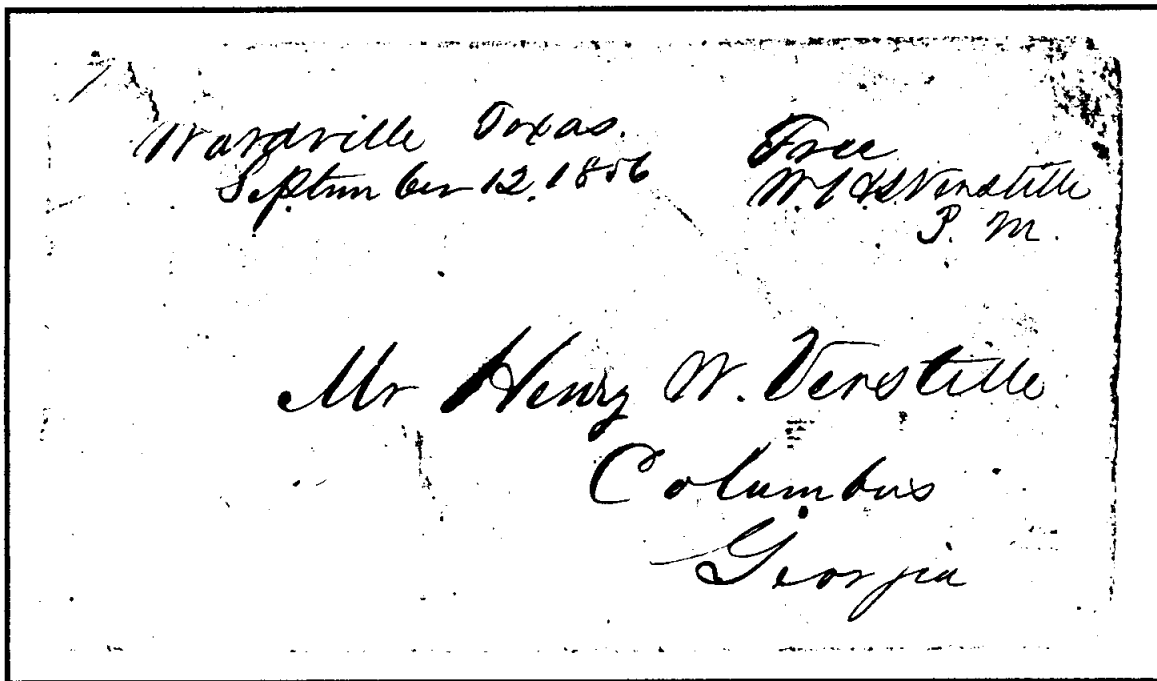 Wardville Texas.
September 12, 1856
Free
Verstille
P. M.
Mr Henry W. Verstille
Columbus
Georgia